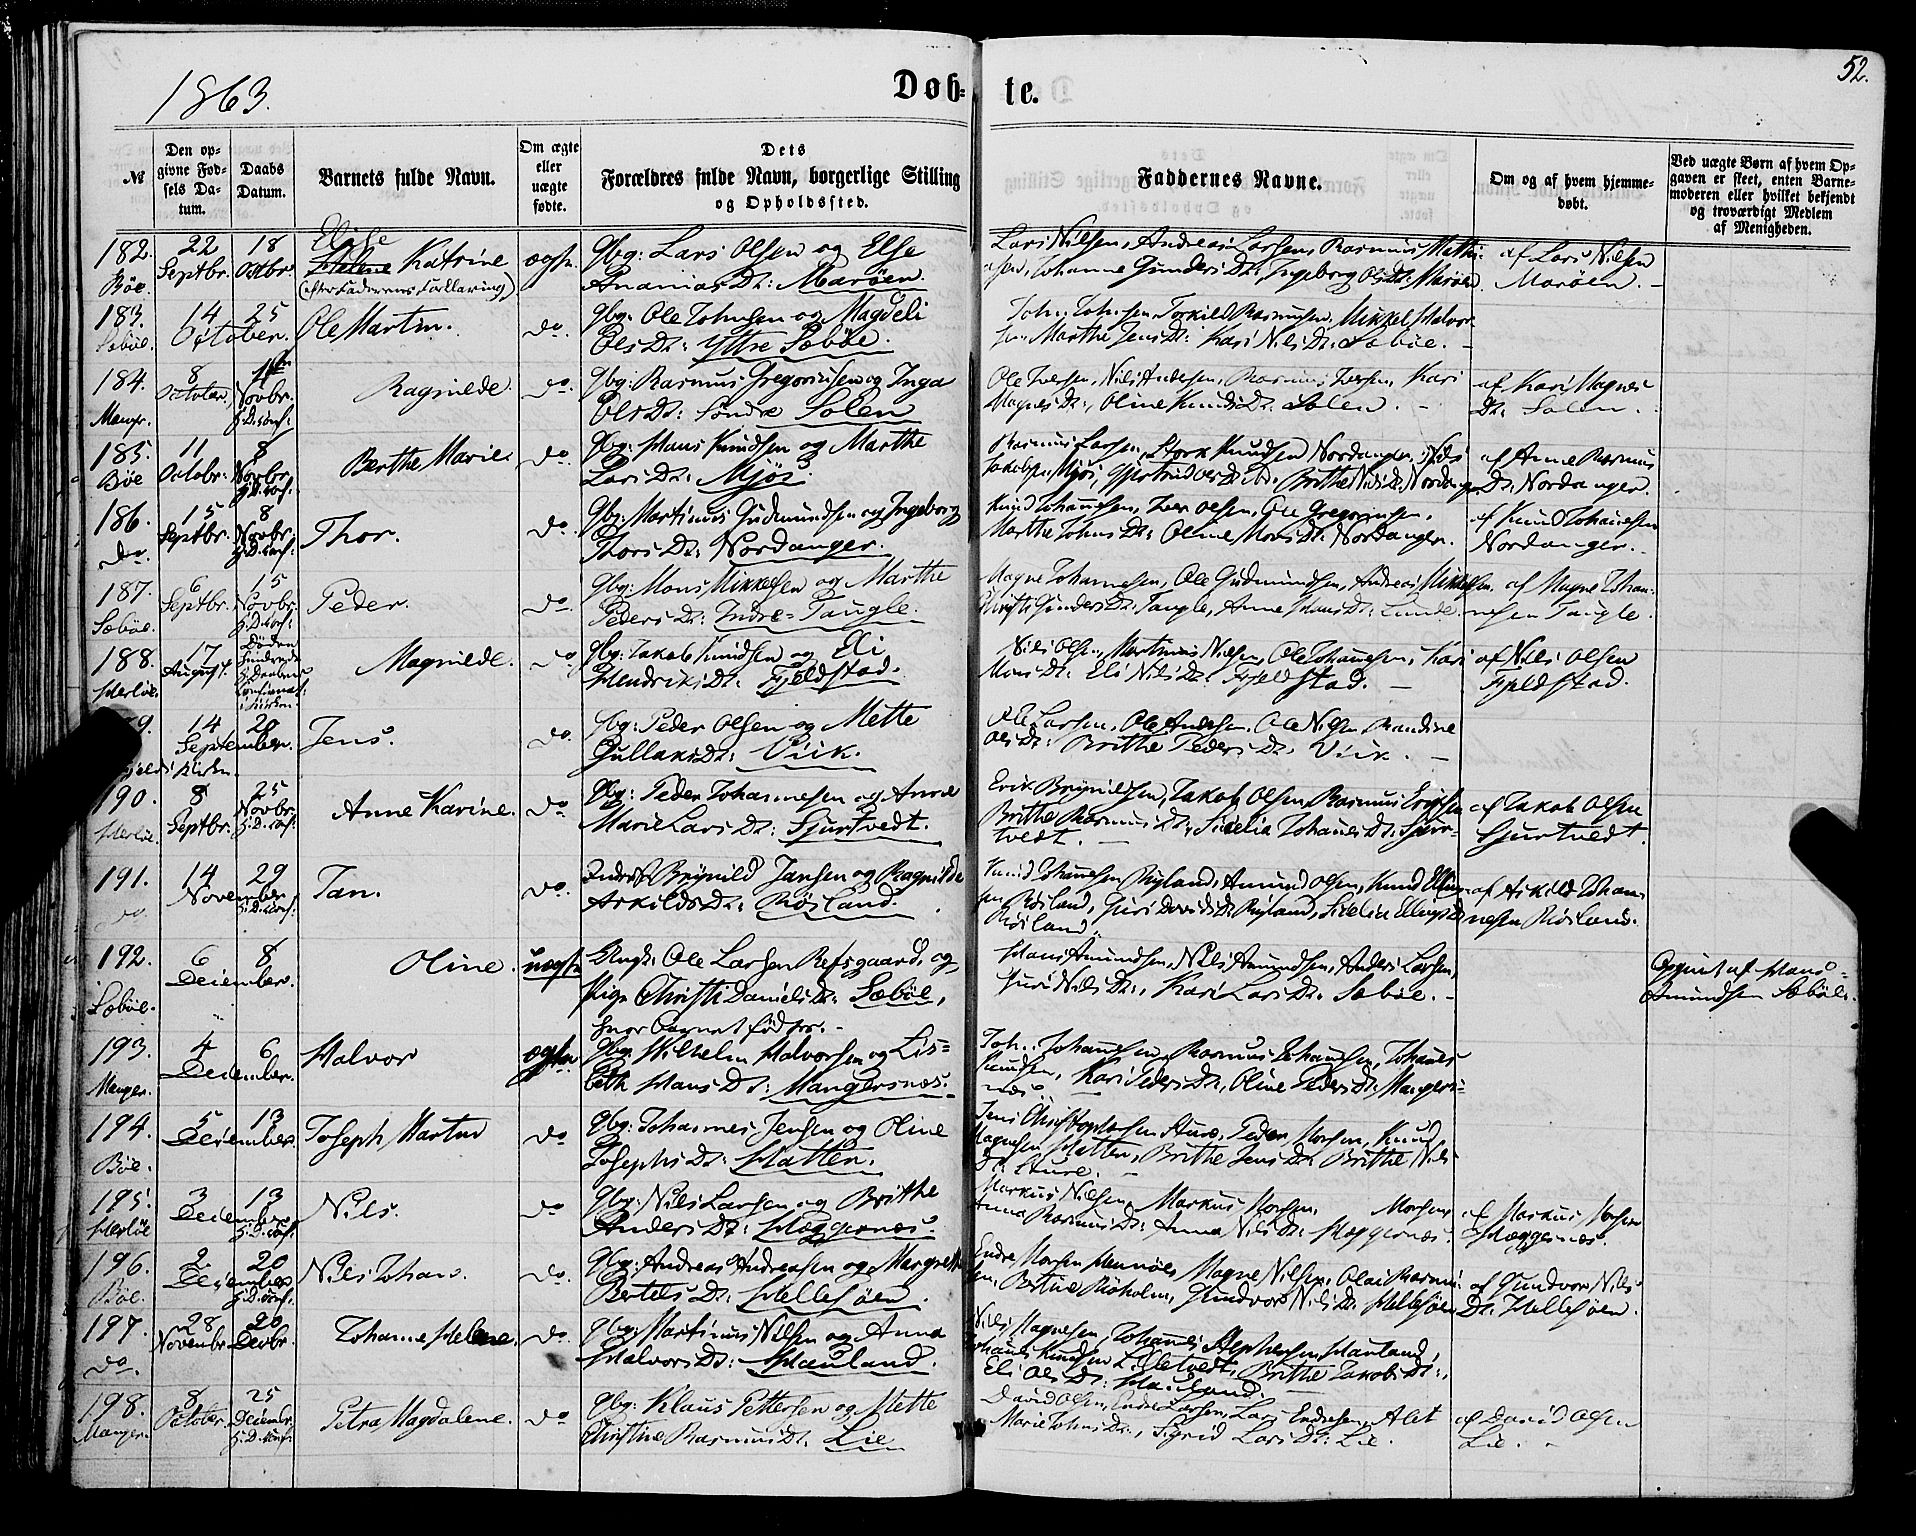 1863.
Døb-
te.
52.
№
Den op-
givne Fød-
sels Da-
tum.
Daabs
Datum.
Barnets fulde Navn.
Om ægte
eller
uægte
fødte.
Dets
Forældres fulde Navn, borgerlige Stilling
og Opholdssted.
Faddernes Navne.
Om og af hvem hjemme-
døbt.
Ved uægte Børn af hvem Op-
gaven er skeet, enten Barne-
moderen eller hvilket bekjendt
og troværdigt Medlem
af Menigheden.
182. 22 18 Elise
Bøe. Septbr. Octbr. Helene Katrine
(efter Faderens Forklaring)
ægte. Gbg: Lars Olsen og Else
Ananias Dt: Marøen.
Lars Nilsen, Andreas Larsen, Rasmus Mathi-
asen, Johanne Gunders Dt:, Ingeborg Ols Dt: Marøen.
af Lars Nilsen
Marøen.
183. 14 25
Sæbøe. October. Ole Martin. do. Gbg: Ole Johnsen og Magdeli
Ols Dt: Yttre Sæbøe.
Joh. Johnsen, Torkild Rasmussen, Mikkel Halvor-
sen, Marthe Jens Dt: Kari Nils Dt: Sæbøe.
184. 8 1ste
Manger. October. Novbr. Ragnilde. do. Gbg: Rasmus Gregoriusen og Inga
Ols Dt: Søndre Solen
Ole Iversen, Nils Andersen, Rasmus Iversen, Kari
Magnes Dt:, Oline Knuds Dt: Solen.
af Kari Magnes
Dt: Solen.
185. 11 8
Bøe Octobr. Novbr. Berthe Marie. do. Gbg: Hans Knudsen og Marthe
Lars Dt: Mjøs.
Rasmus Larsen, Stork Knudsen Nordanger, Nils
Jakobsen Mjøs, Dt: Brithe Nils Dt: Nordanger
af Anne Rasmus
Dt: Nordanger.
186. 15 8
do. Septbr. Novbr. Thor. do. Gbg: Martinus Gudmundsen og Ingeborg
Thors Dt: Nordanger.
Knud Johannesen, Iver Olsen, Ole Gregoriusen,
Marthe Johns Dt: Oline Mons Dt: Nordanger.
af Knud Johannesen
Nordanger.
187. 6 15
Sæbøe. Septbr. Novbr. Peder. do. Gbg: Mons Mikkelsen og Marthe
Peders Dt: Indre-Tangle.
Magne Johannesen, Ole Gudmundsen, Andreas Mikkelsen,
Christi Gunders Dt: Tangle, Anne Hans Dt: Lunde.
af Magne Johan-
nesen Tangle.
188. 17 Døden
Herløe. August. Magnilde. do. Gbg: Jakob Knudsen og Eli
Hendriks Dt: Fjeldstad.
Nils Olsen, Martinus Nilsen, Ole Johannesen, Kari
Mons Dt: Eli Nils Dt: Fjeldstad.
af Nils Olsen
Fjeldstad.
9. 14 20
September. Jens. do. Gbg: Peder Olsen og Mette
Gullaks Dt: Viik.
Ole Larsen, Ole Andersen, Ole Nilsen, Randine
Ols Dt: Brithe Peders Dt: Viik.
190. 8 25
Herløe. Septbr. Novbr. Anne Karine. do. Gbg: Peder Johannesen og Anne
Marie Lars Dt: Sjurtvedt.
Erik Brynildsen, Jakob Olsen, Rasmus Eriksen
Brithe Rasmus Dt:, Sicelia Johannes Dt: Sjur-
tvedt.
af Jakob Olsen
Sjurtvedt.
191. 14 29
do. November Jan. do. Inderst Brynild Jansen og Ragnilde
Askilds Dt: Røsland.
Knud Johannesen Ryland, Amund Olsen, Knud Elling-
sen Røsland, Guri Davids Dt: Ryland, Sicelia Ellings Dt:
Røsland.
af Askild Johan-
nesen Røsland.
192. 6 8
Sæbøe. December. Oline. uægte Ungk: Ole Larsen Refsgaard, og
Pige Christi Daniels Dt: Sæbøe,
hvor Barnet fødtes.
Hans Amundsen, Nils Amundsen, Anders Larsen,
Guri Nils Dt:, Kari Lars Dt: Sæbøe.
Opgivet af Hans
Amundsen Sæbøe.
193. 4 6
Manger. December. Halvor ægte Gbg: Wilhelm Halvorsen og Lis-
beth Hans Dt: Mangersnes.
Joh. Johannesen, Rasmus Johannesen, Johannes
Knudsen, Kari Peders Dt:, Oline Peders Dt: Mangers-
nes.
194. 5 13
Bøe. December Joseph Martin do Gbg: Johannes Jensen og Oline
Josephs Dt: Hatten.
Jens Christophersen Sture, Peder Monsen, Knud
Magnesen Hatten, Brithe Jens Dt: Brithe Nils
Dt: Sture.
195. 3 13
Herløe December Nils. do Gbg: Nils Larsen og Brithe
Anders Dt: Hæggernæs.
Markus Nilsen, Markus Monsen, Monsen
Anna Rasmus Dt: Anna Nils Dt: Hæggernæs.
af Markus Monsen
Hæggernæs.
196. 2 20
Bøe. December Nils Johan. do. Gbg: Andreas Andreasen og Margrethe
Bertels Dt: Hellesøen.
Endre Monsen Hennøe, Magne Nilsen, Olai Rasmus-
sen, Bertine Røsholm, Gundvor Nils Dt: Hellesøen
af Gundvor Nils
Dt: Hellesøen.
197. 28 20
do. Novembr. Decbr. Johanne Helene. do. Gbg: Martinus Nilsen og Anna
Halvors Dt: Hauland.
Nils Magnesen, Johannes Stephensen Hauland,
Johannes Knudsen Lilletvedt, Brithe Jakobs Dt:,
Eli Ols Dt: Hauland.
198. 8 25
Manger. October. Decembr. Petra Magdalene. do Gbg: Klaus Pettersen og Mette
Christine Rasmus Dt: Lie
David Olsen, Endre Larsen, Lars Endresen, Alet
Marie Johns Dt:, Sigrid Lars Dt: Lie.
af David Olsen
Lie.